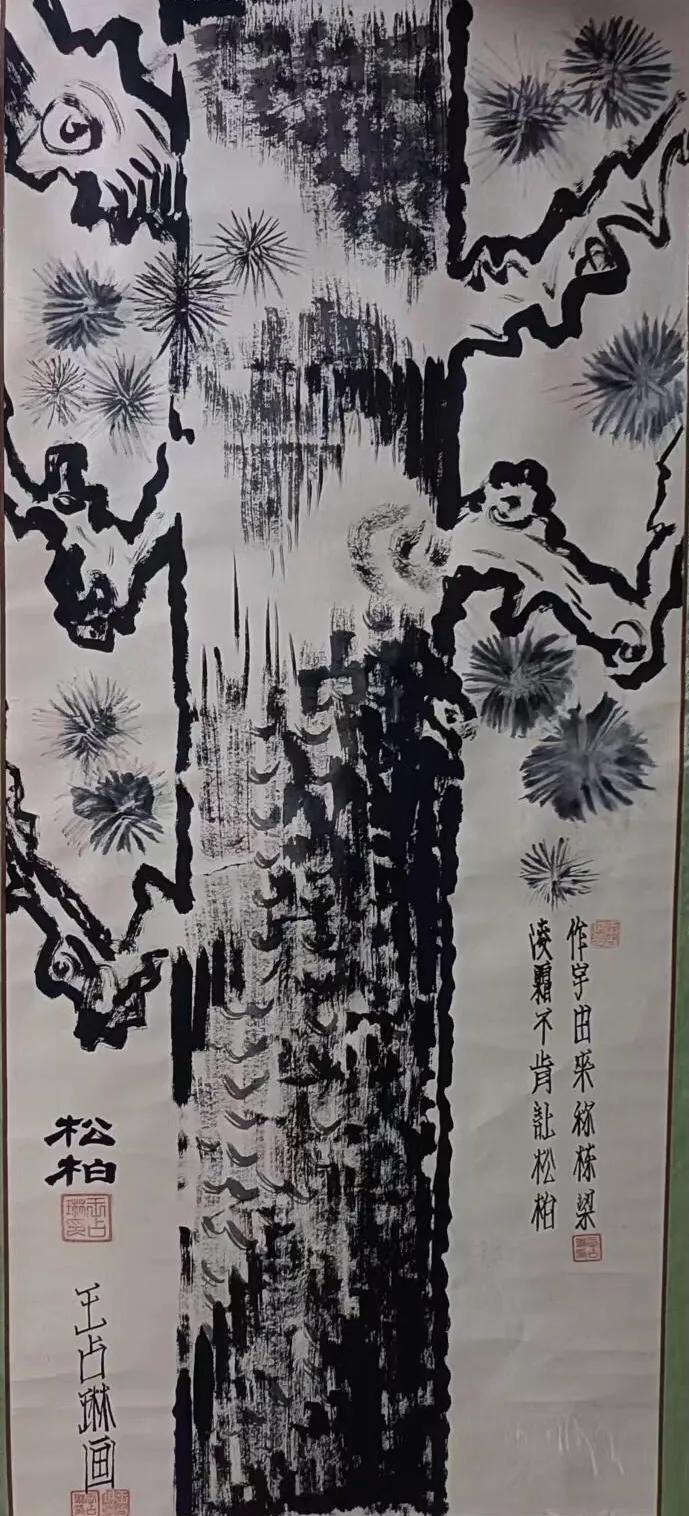 作宇由来称栋梁
凌霜不肯让松柏
松柏
王占琳印
王占琳画